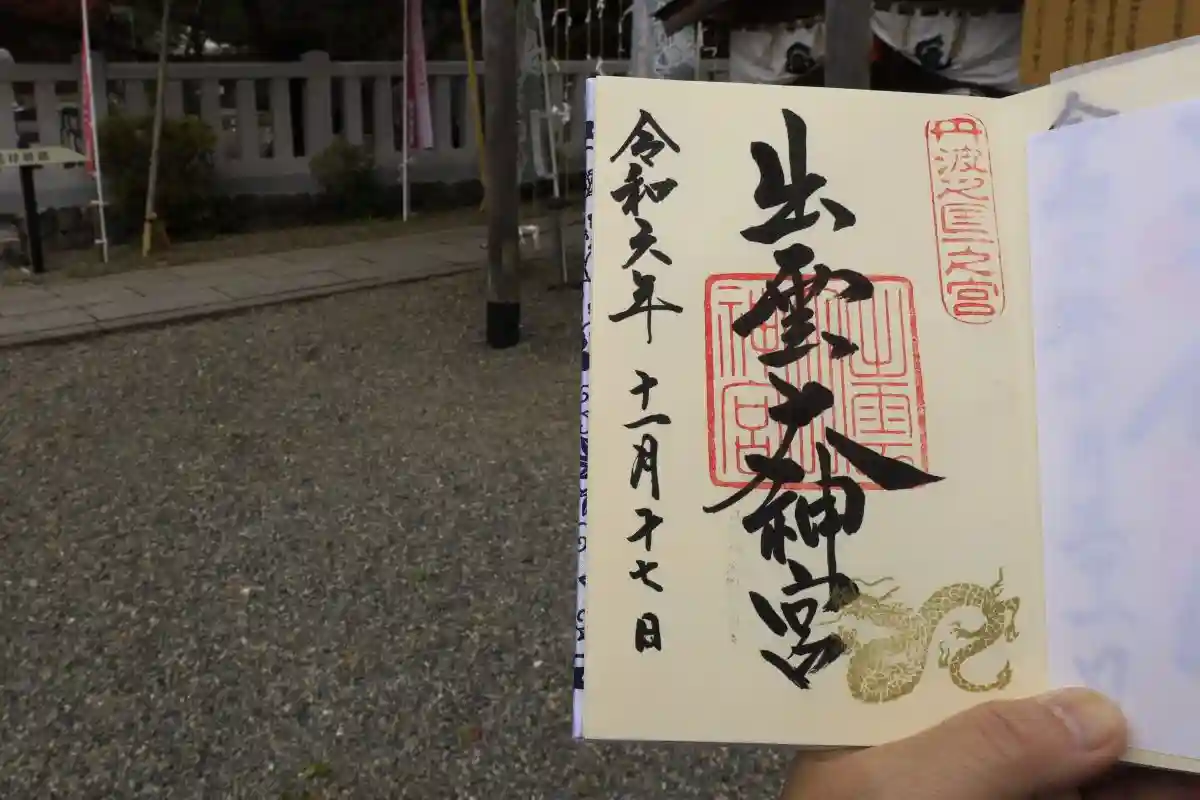 丹波國一之宮
出雲大神宮
出雲大神宮
令和六年 十一月十七日